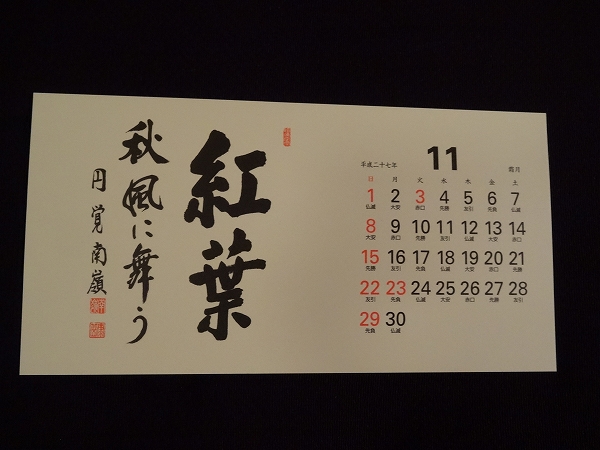 紅葉
秋風に舞う
円覚南嶺
平成二十七年 11 霜月
日 月 火 水 木 金 土
1 2 3 4 5 6 7
仏滅 大安 赤口 先勝 友引 先負 仏滅
8 9 10 11 12 13 14
大安 赤口 先勝 友引 仏滅 大安 赤口
15 16 17 18 19 20 21
先勝 友引 先負 仏滅 大安 赤口 先勝
22 23 24 25 26 27 28
友引 先負 仏滅 大安 赤口 先勝 友引
29 30
先負 仏滅